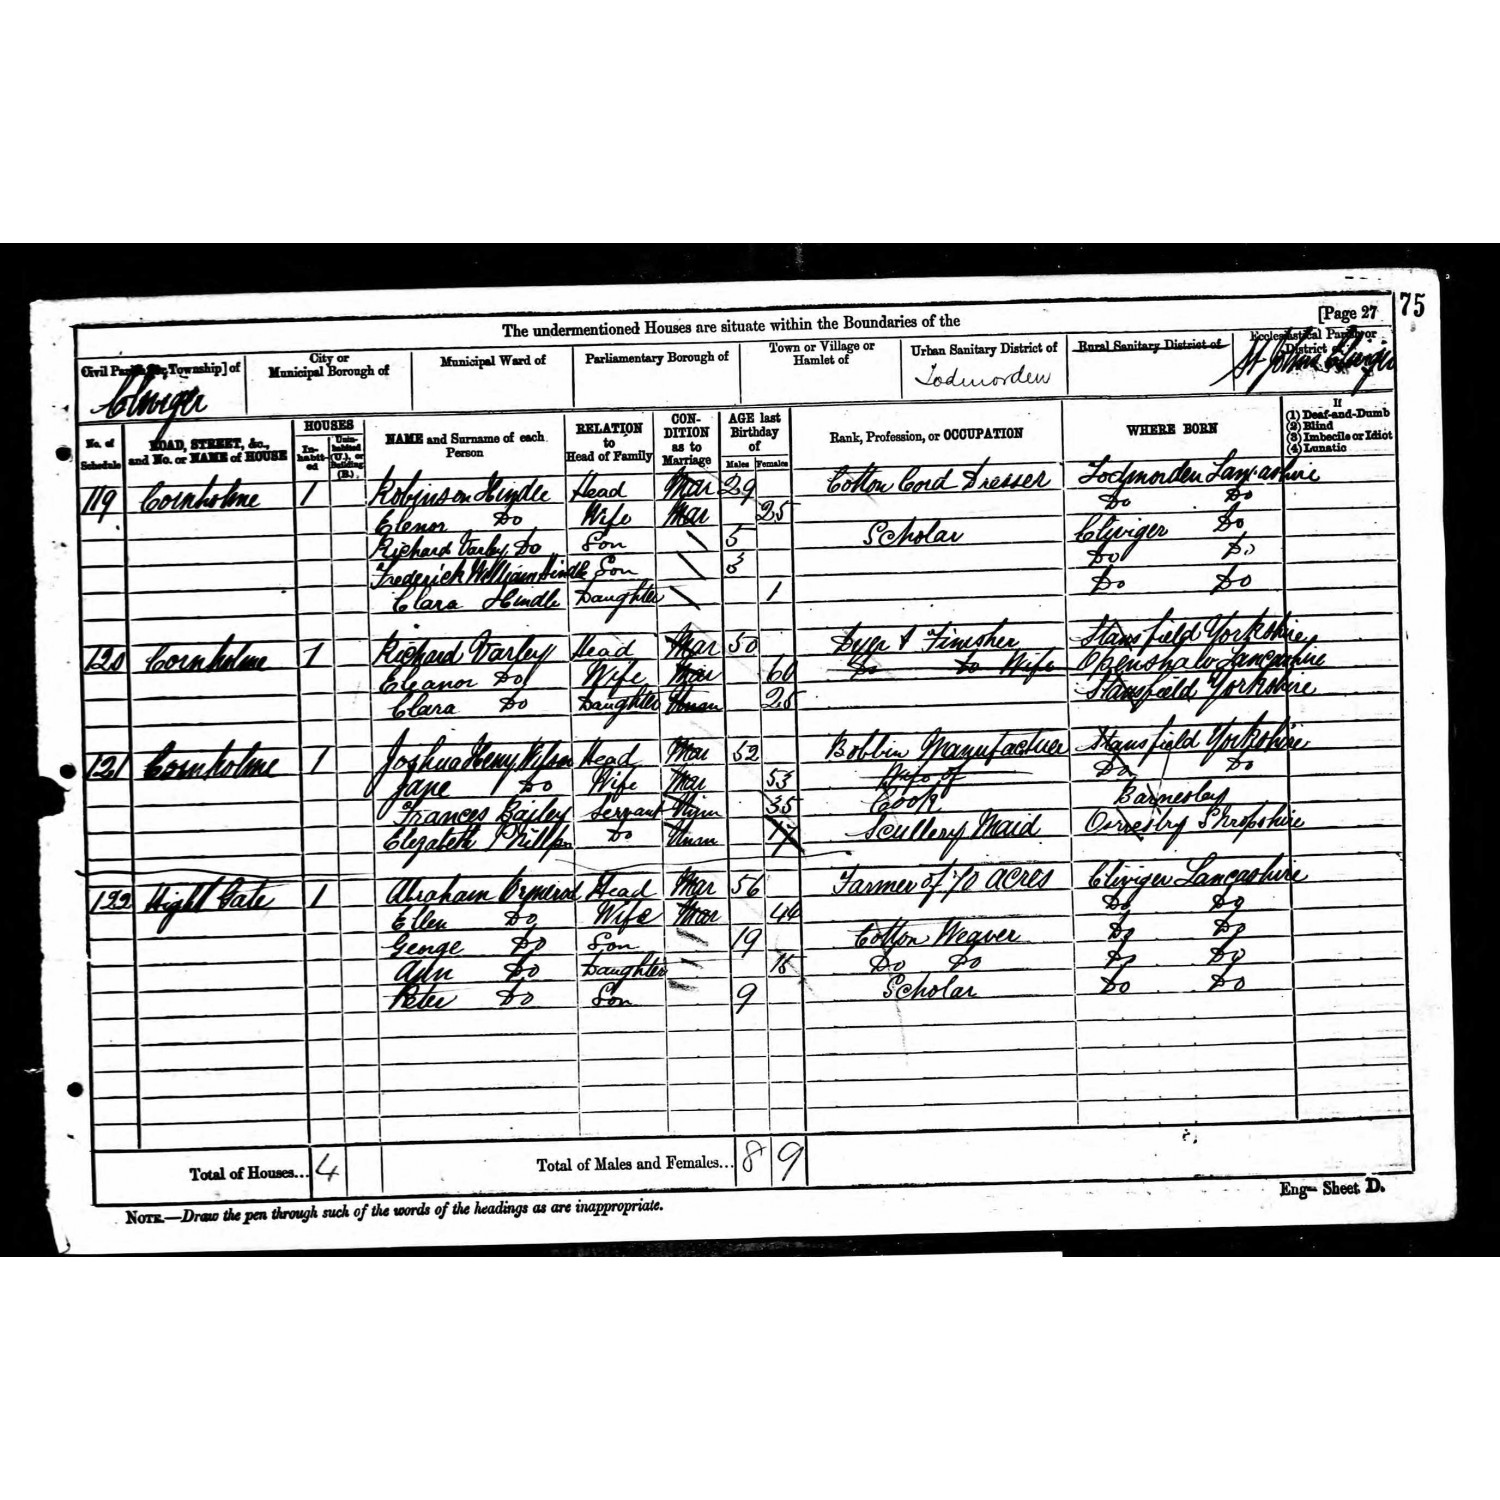 [Page 27
75
The undermentioned Houses are situate within the Boundaries of the
Civil Parish [or Township] of
City or Municipal Borough of
Municipal Ward of
Parliamentary Borough of
Town or Village or Hamlet of
Urban Sanitary District of
Rural Sanitary District of
Ecclesiastical Parish or District of
Cliviger
Todmorden
St Johns Cliviger
No. of Schedule
ROAD, STREET, &c., and No. or NAME of HOUSE
HOUSES
In-habit-ed
Unin-habited (U.), or Building (B.)
NAME and Surname of each Person
RELATION to Head of Family
CON-DITION as to Marriage
AGE last Birthday of
Males
Females
Rank, Profession, or OCCUPATION
WHERE BORN
If
(1) Deaf-and-Dumb
(2) Blind
(3) Imbecile or Idiot
(4) Lunatic
119 Cornholme 1 Robinson Hindle Head Mar 29 Cotton Cord Dresser Todmorden Lancashire
Elenor Do Wife Mar 25 Do Do
Richard Varley Do Son \ 5 Scholar Cliviger Do
Frederick William Hindle Son \ 3 Do Do
Clara Hindle Daughter \ 1 Do Do
120 Cornholme 1 Richard Varley Head Mar 50 Dyer & Finisher Stansfield Yorkshire
Eleanor Do Wife Mar 60 Do Do Wife Openshaw Lancashire
Clara Do Daughter Unm 25 Stansfield Yorkshire
121 Cornholme 1 Joshua Henry Wilson Head Mar 52 Bobbin Manufacturer Stansfield Yorkshire
Jane Do Wife Mar 53 Wife of Do Do
Frances Bailey Servant Unm 35 Cook Barnesley
Elizabeth Do Unm 17 Scullery Maid Shropshire
122 Hight Gate 1 Abraham Ormerod Head Mar 56 Farmer of 70 acres Cliviger Lancashire
Ellen Do Wife Mar Do Do
George Do Son 19 Cotton Weaver Do Do
Ann Do Daughter Do Do Do Do
Peter Do Son 9 Scholar Do Do
Total of Houses... 4
Total of Males and Females... 8 9
Eng— Sheet D.
NOTE.—Draw the pen through such of the words of the headings as are inappropriate.